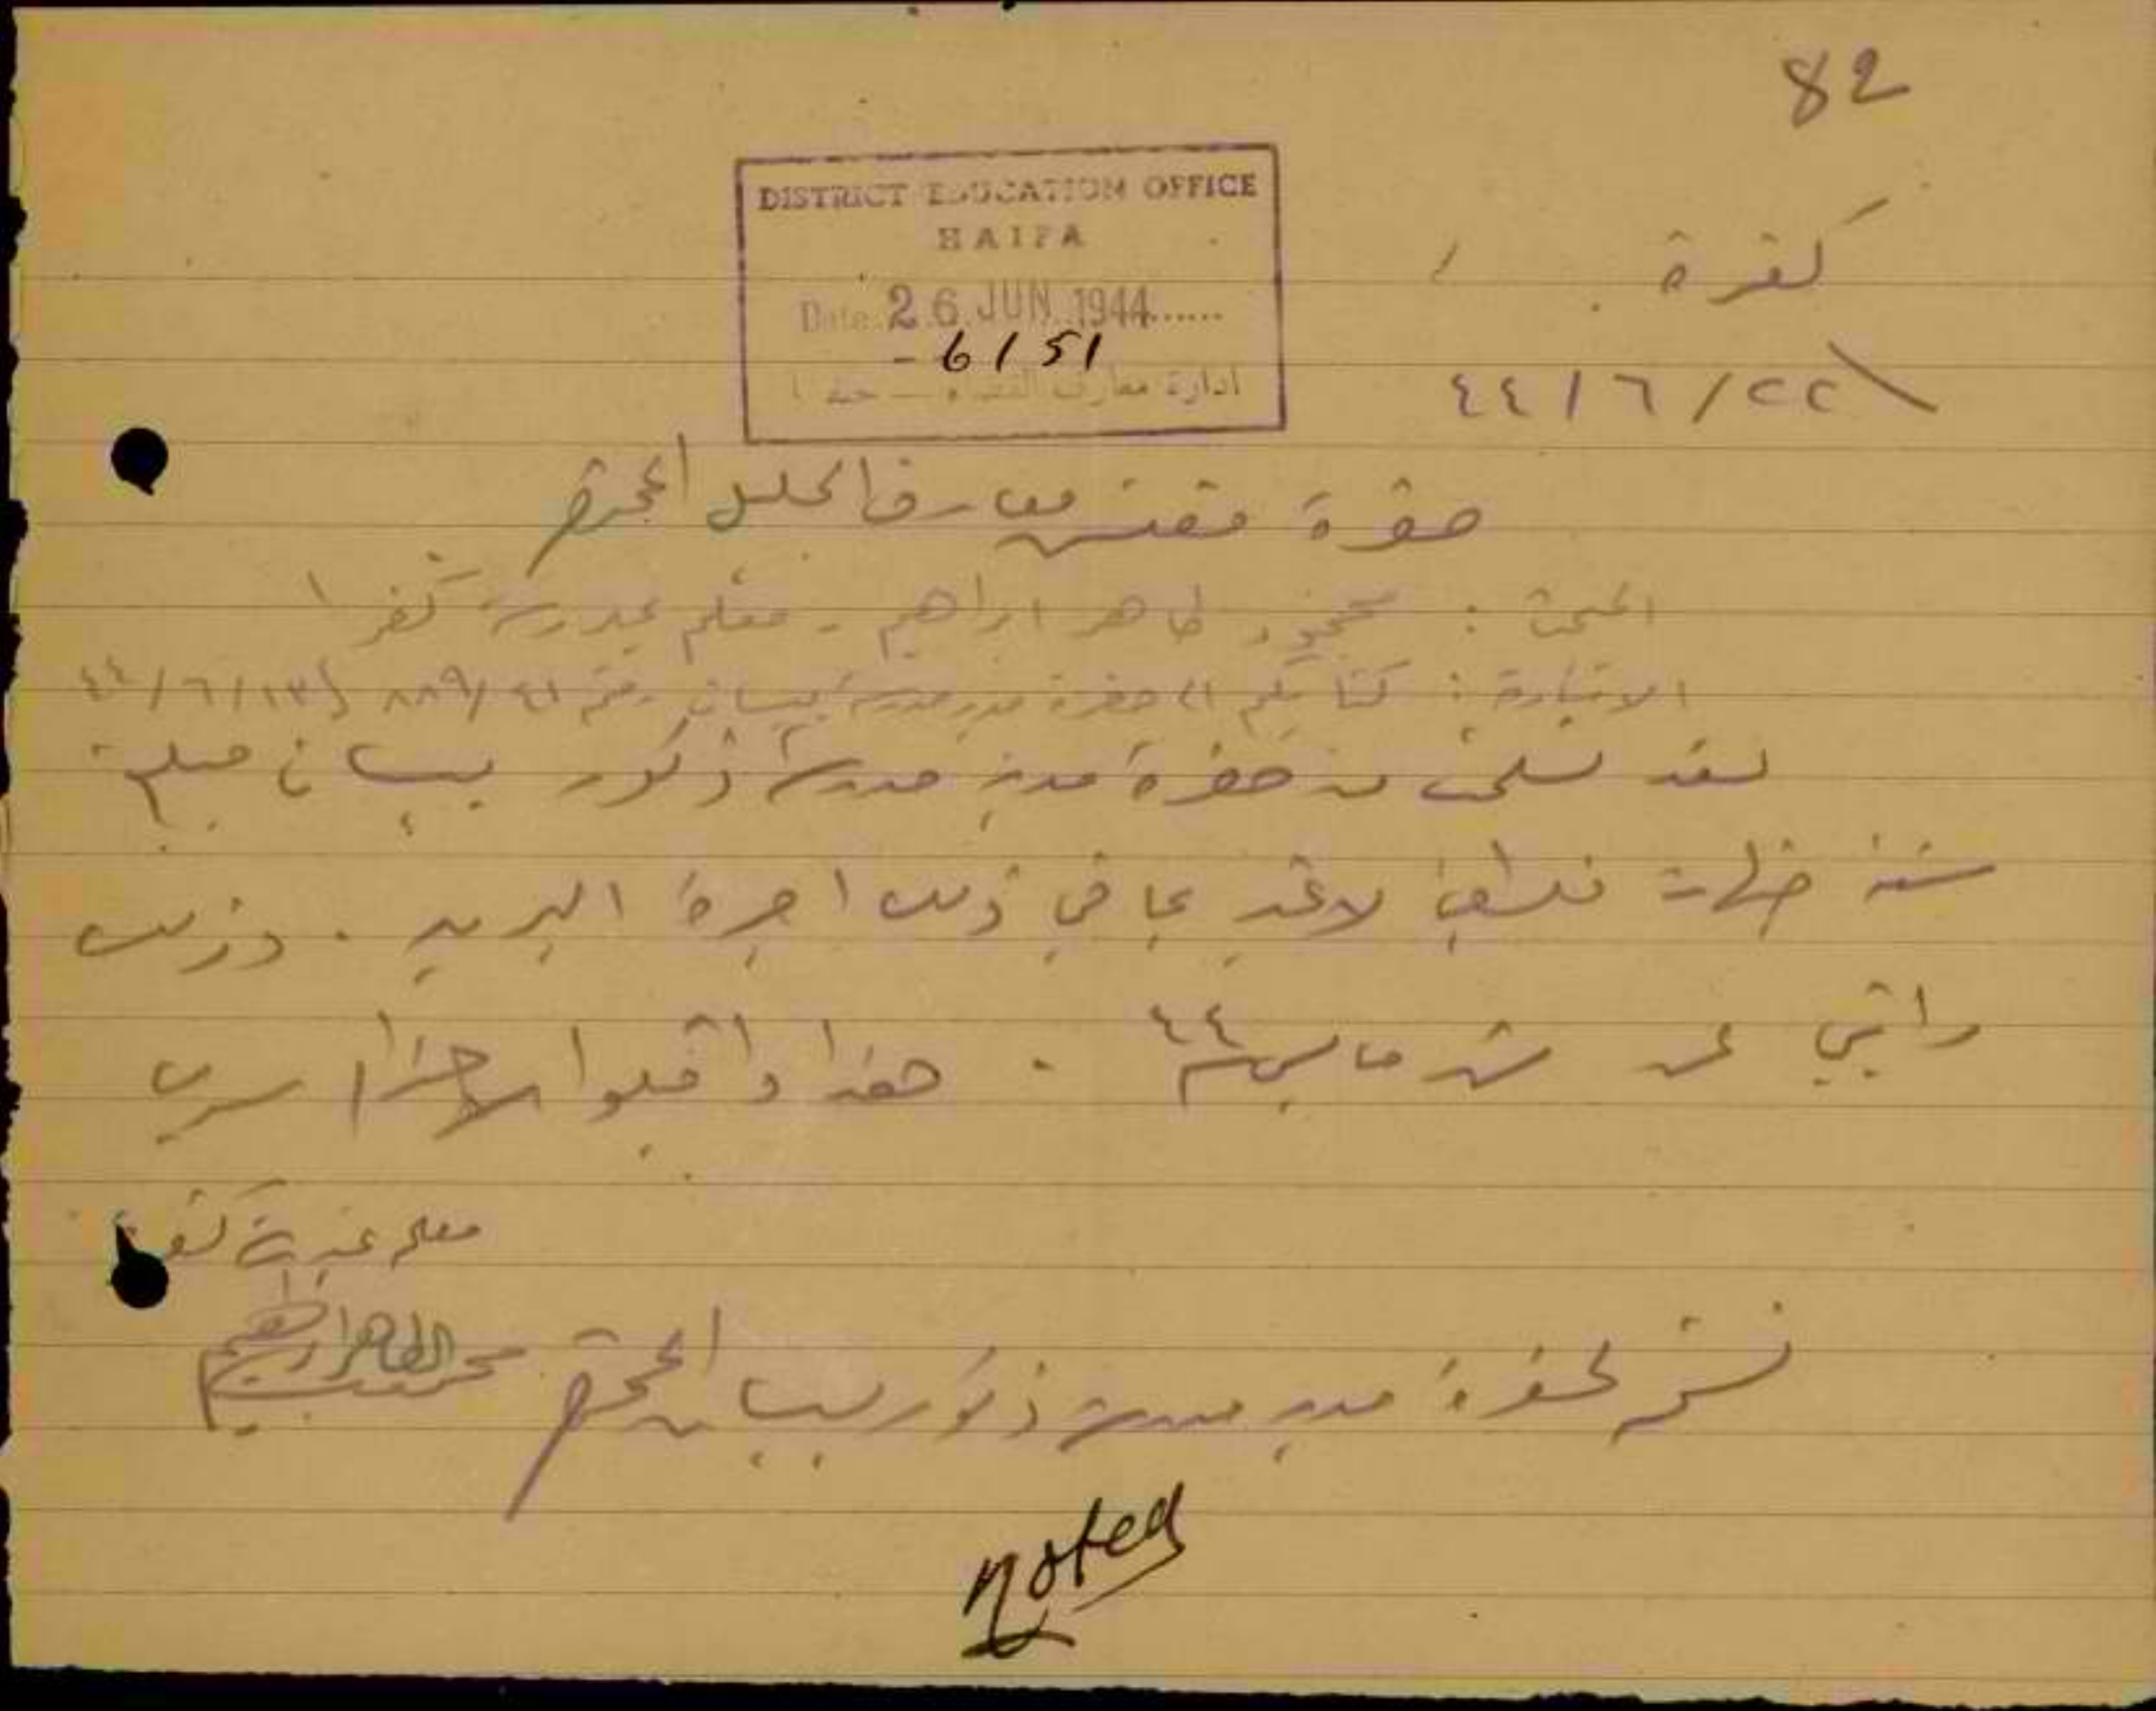 82
DISTRICT EDUCATION OFFICE
HAIFA
Date 26 JUN 1944
6/51 -
ادارة معارف القضاء — حيفا
كفرة
٤٤/٦/٢٢
حضرة مفتش معارف الجليل المحترم
المبحث : محمود طاهر ابراهيم - معلم بمدرسة كفرا
الاشارة : كتابكم الى حضرة مدير مدرسة بيسان رقم ٤١/٨٨٩ ٤٤/٦/١٣
لقد تسلمت من حضرة مدير مدرسة ذكور بيسان مبلغ
ستة جنيهات فلسطينية لا غير بما في ذلك اجرة البريد . وذلك
راتبي عن شهر مايس ٤٤ . هذا واقبلوا احترامي سيدي
معلم مدرسة كفرة
محمود الطاهر ابراهيم
نسخة لحضرة مدير مدرسة ذكور بيسان المحترم
noted